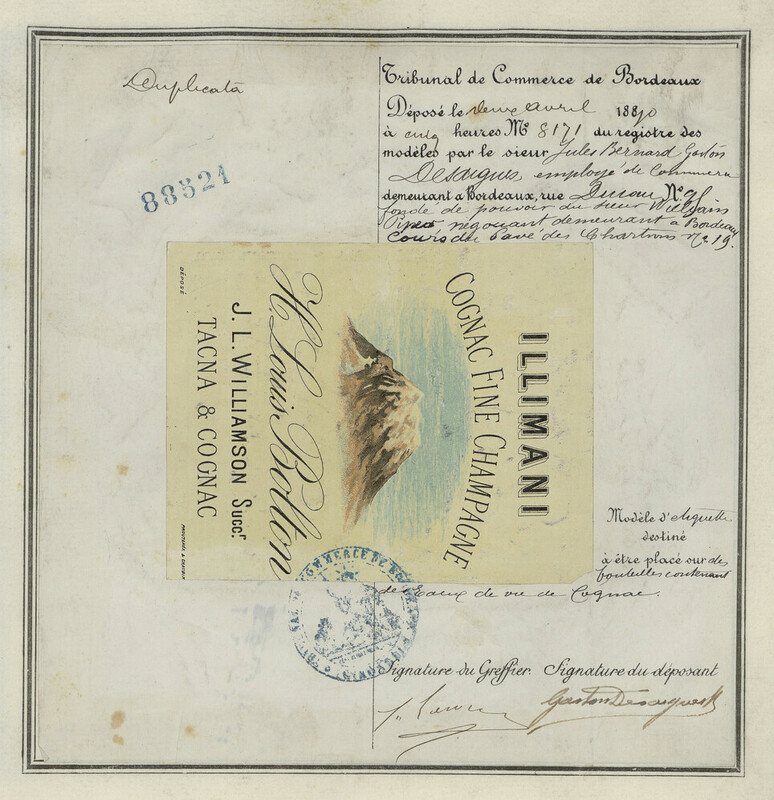 Duplicata
88521
Tribunal de Commerce de Bordeaux
Déposé le deux Avril 1880
à cinq heures No 8171 du registre des
modèles par le sieur Jules Bernard Gaston
employé de Commerce
demeurant à Bordeaux, rue No
fondé de pouvoir du sieur William
négociant demeurant à Bordeaux
Cours du Pavé des Chartrons No 19.
ILLIMANI
COGNAC FINE CHAMPAGNE
H. Louis Bolton
J. L. WILLIAMSON Succr
TACNA & COGNAC
DÉPOSÉ
Modèle d'étiquette
destiné
à être placé sur des
bouteilles contenant
des Eaux de vie de Cognac.
Signature du Greffier. Signature du déposant